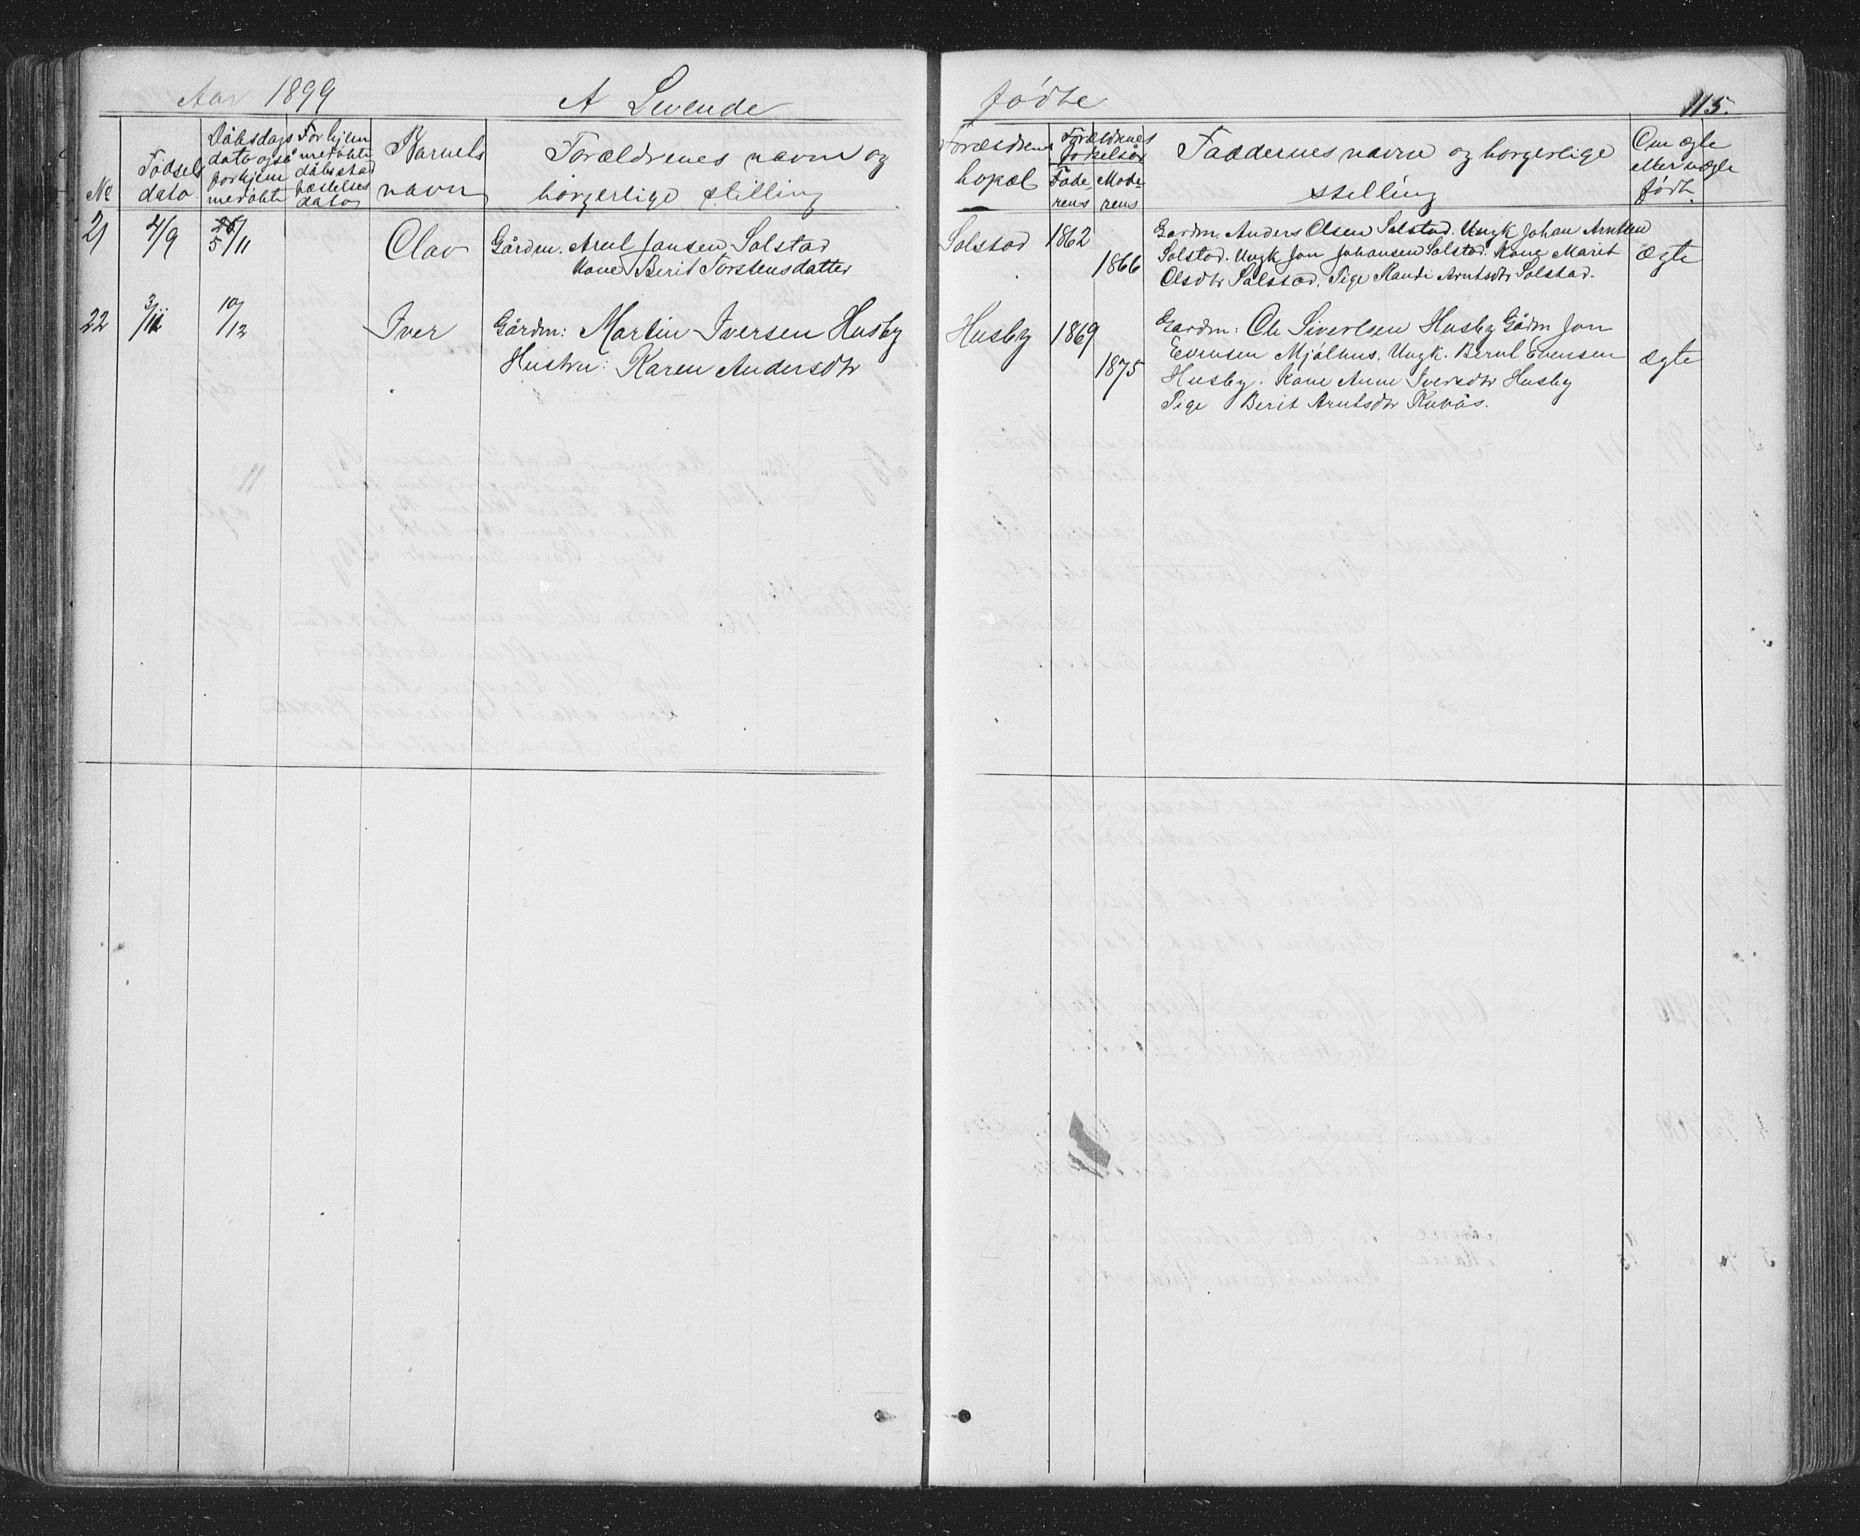 Aar 1899 A Levende fødte 115.
No
Fødsels dato
Dåbsdags dato også for hjemmedøbte
For hjemmedøbte dåbsstadfæstelses dato
Barnets navn
Forældrenes navn og borgerlige stilling
Forældrenes bopæl
Forældrenes fødselsår
Faderens Moderens
Faddernes navne og borgerlige stilling
Om ægte eller uægte født.
21 4/9 5/11 Olav Gårdm. Arnt Jonsen Solstad
Kone Berit Torstensdatter
Solstad 1862
1866
Gardm. Anders Olsen Solstad. Ungk Johan Arntsen
Solstad. Ungk Jon Johansen Solstad. Kone Marit
Olsdtr Solstad. Pige Randi Arntsdtr Solstad.
ægte
22 3/11 10/12 Iver Gårdm: Martin Iversen Husby
Hustru: Karen Andersdtr
Husby 1869
1875
Gardm: Ole Sivertsen Husby Gårdm Jon
Evensen Mjølhus. Ungk. Bernt Evensen
Husby. Kone Anne Iversdtr Husby
Pige Berit Arntsdtr Kuvås.
ægte